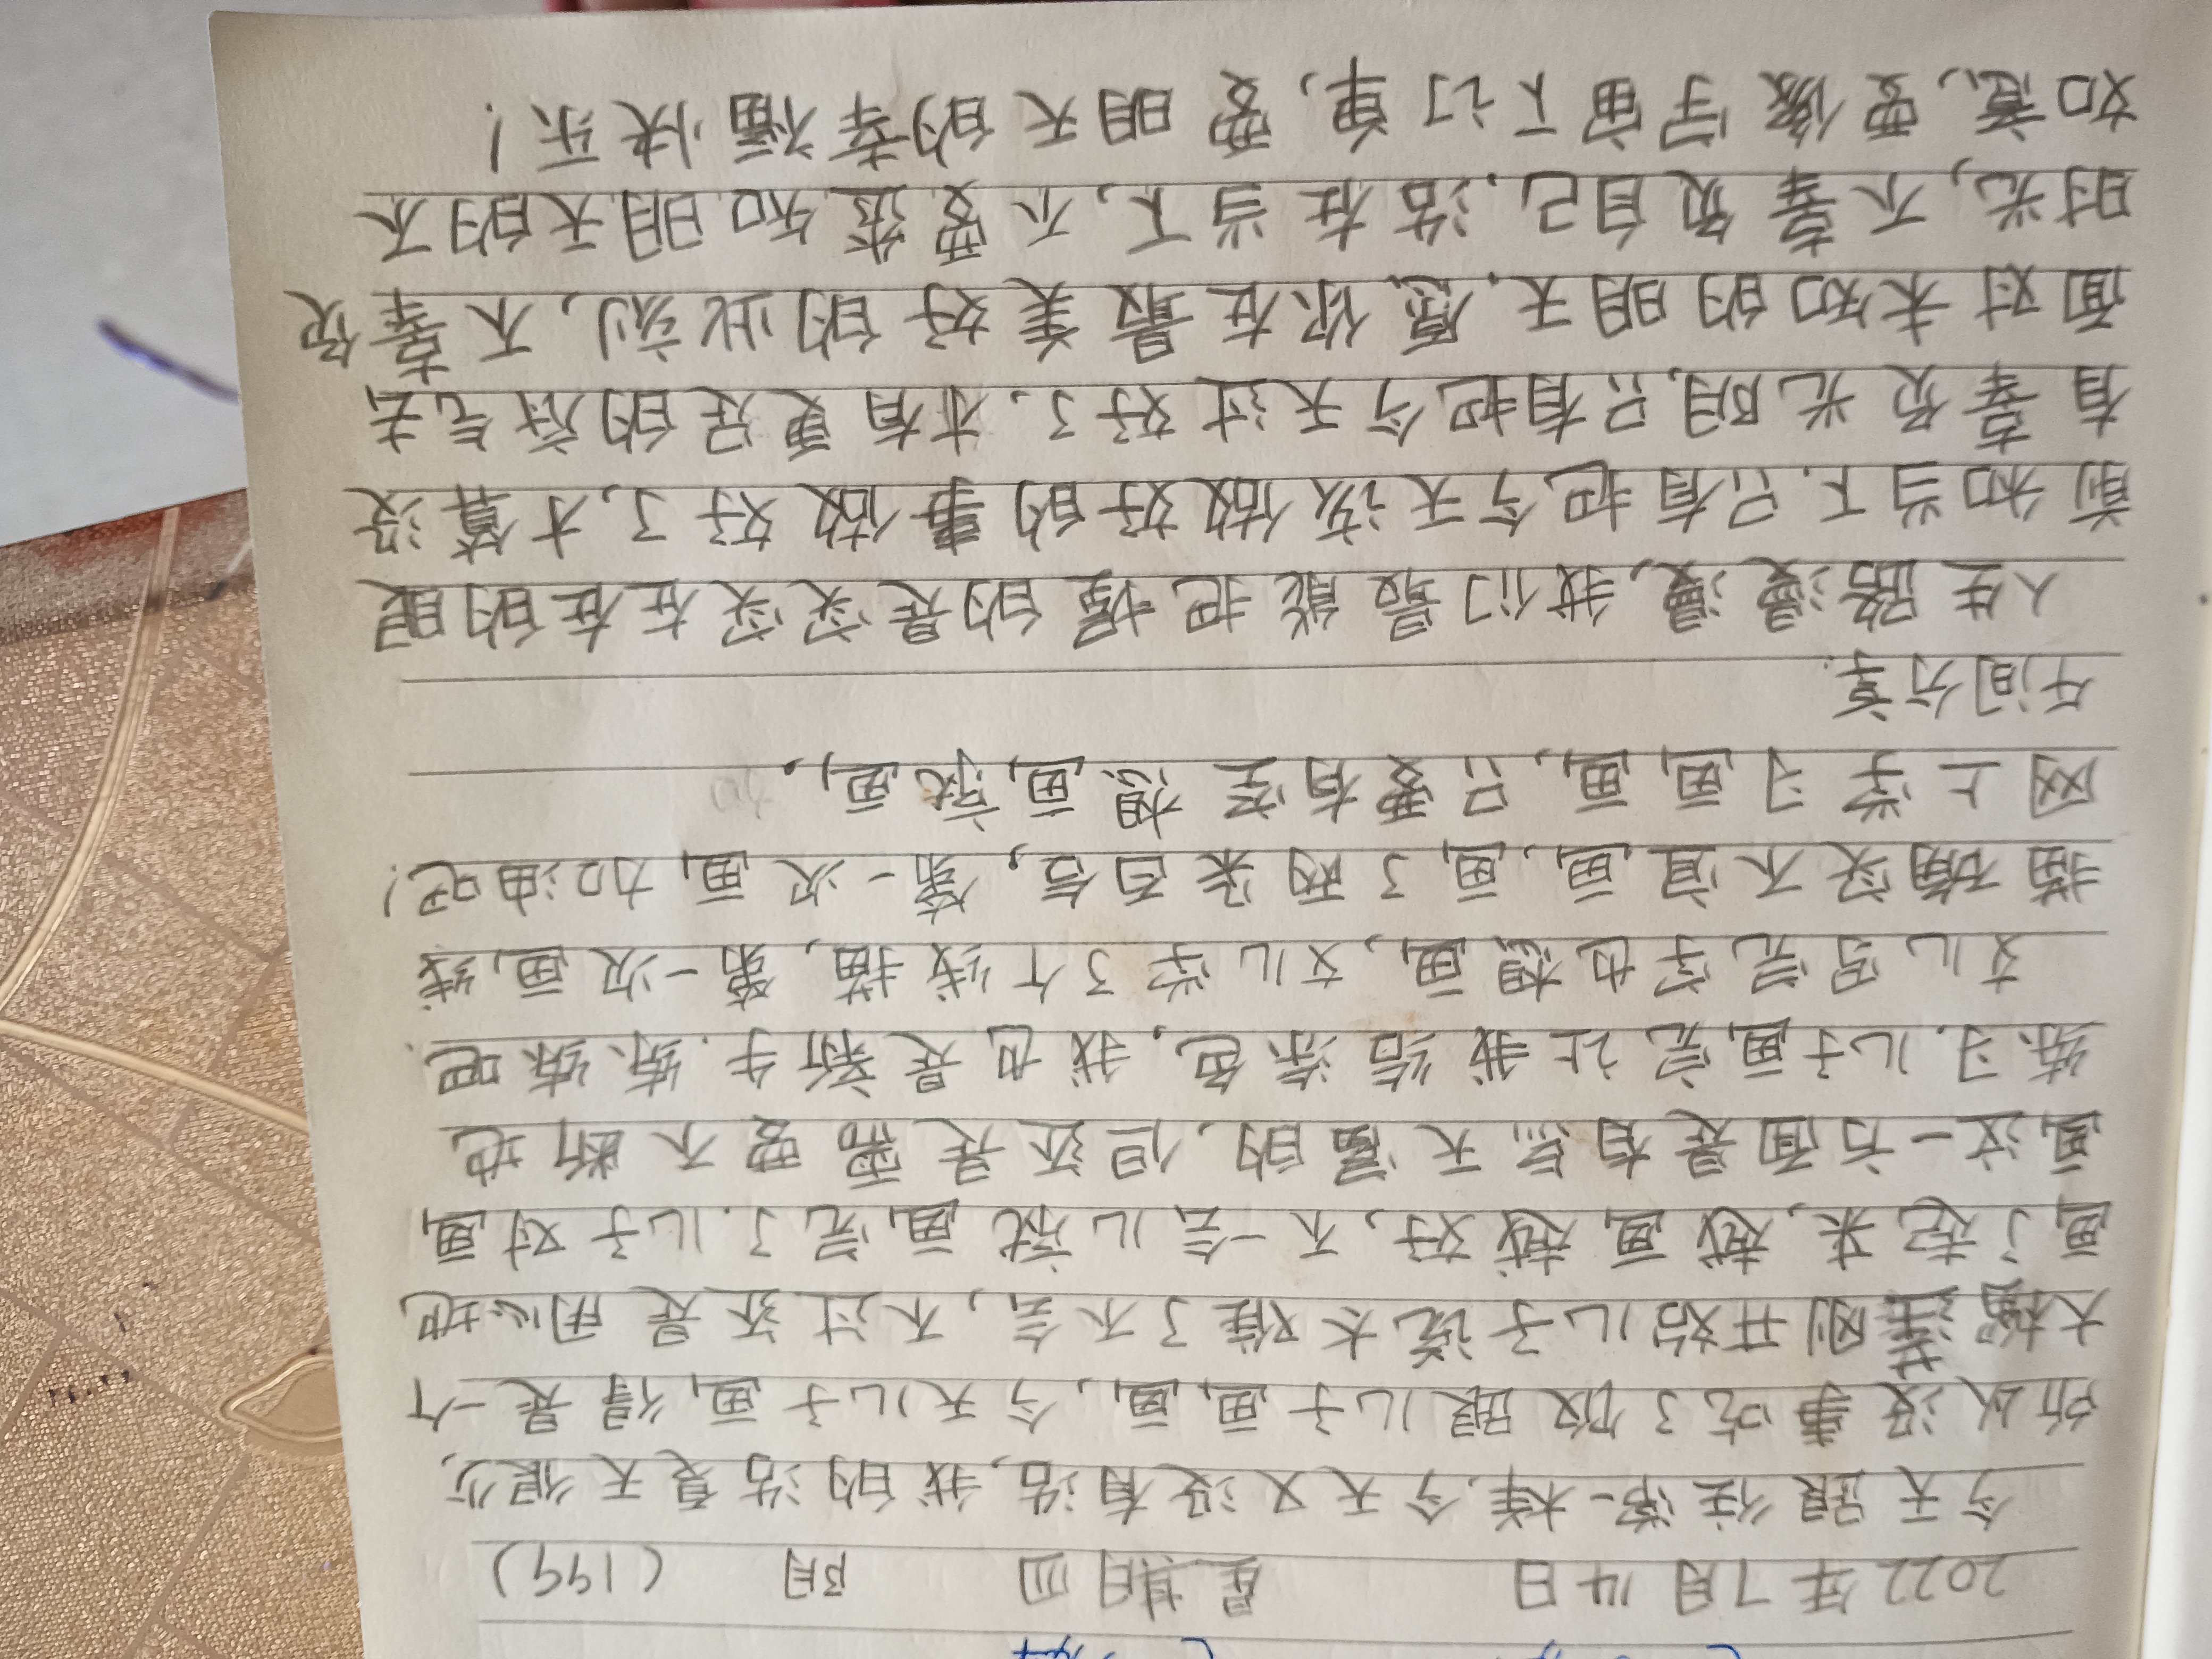 2022年7月14日 星期四 阴 (199)
今天跟往常一样.今天又没有活,我的活夏天很少,
所以没事吃了饭跟儿子画画、今天儿子画得是一个
大楼刚开始儿子说太难了不会,不过还是用心地
画了起来,越画越好,不一会儿就画完了.儿子对画
画这一方面是有点天富的,但还是需要不断地
练习.儿子画完让我给涂色,我也是新手.练练吧.
文儿写完字也想画,文儿学了个线描,第一次画,线
描确实不宜画、画了两张白信,第一次画,加油吧!
网上学习画画,只要有空想画就画。
午间分享.
人生路漫漫,我们最能把握的是实实在在的眼
前和当下.只有把今天该做好的事做好了,才算没
有辜负光阴,只有把今天过好了、才有更足的底气去
面对未知的明天.愿你在最美好的此刻,不辜负
时光,不辜负自己.活在当下,不要透知明天的不
如意,要像宇宙下订单,要明天的幸福快乐!